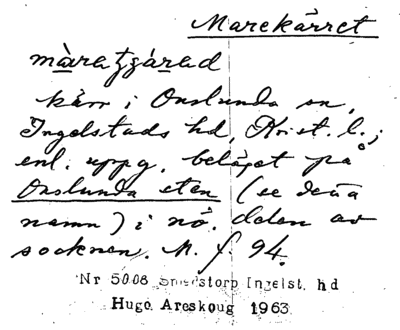 Marekärret
màratzárad
kärr i Onslunda sn,
Ingelstads hd, Krist. l.;
enl. uppg. beläget på
Onslunda eten (se detta
namn) i nö. delen av
socknen. M. f. 94.
Nr 5008 Smedstorp Ingelst. hd
Hugo Areskoug 1963